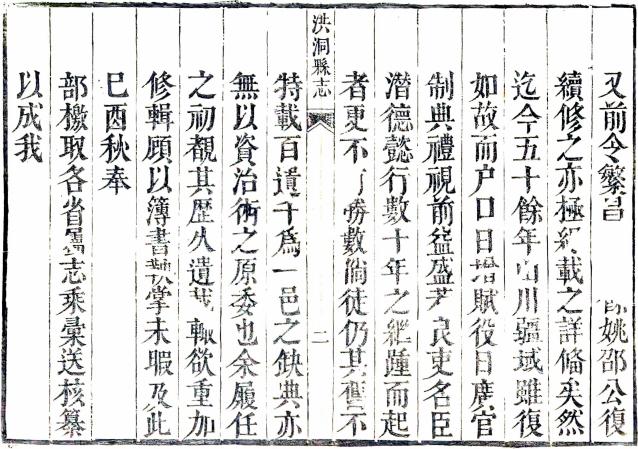 又前令繁昌 姚邵公復
續修之亦極紀載之詳備矣然
迄今五十餘年山川疆域雖復
如故而户口日增賦役日廣官
制典禮視前益盛若良吏名臣
潛德懿行數十年之繼踵而起
者更不 勝數倘徒仍其舊不
洪洞縣志
二
特載百遺千爲一邑之缺典亦
無以資治術之原委也余履任
之初覩其歷久遺 輙欲重加
修輯顧以簿書鞅掌未暇及此
巳酉秋奉
部檄取各省屬志乘彙送核纂
以成我